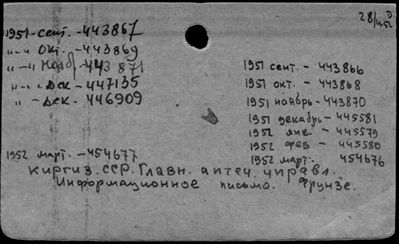 28/
1951-сент. -443867
"-" Окт. -443869
"-" Ноябр-443871
"-" Дек -447135
"- Дек. -446909
1952 март. -454677
1951 сент. - 443866
1951 окт. - 443868
1951 ноябрь-443870
1951 декабрь-445581
1952 янв. -445579
1952 фев -445580
1952 март. 454676
Киргиз. ССР. Главн. аптеч. управл.
Информационное письмо. Фрунзе.